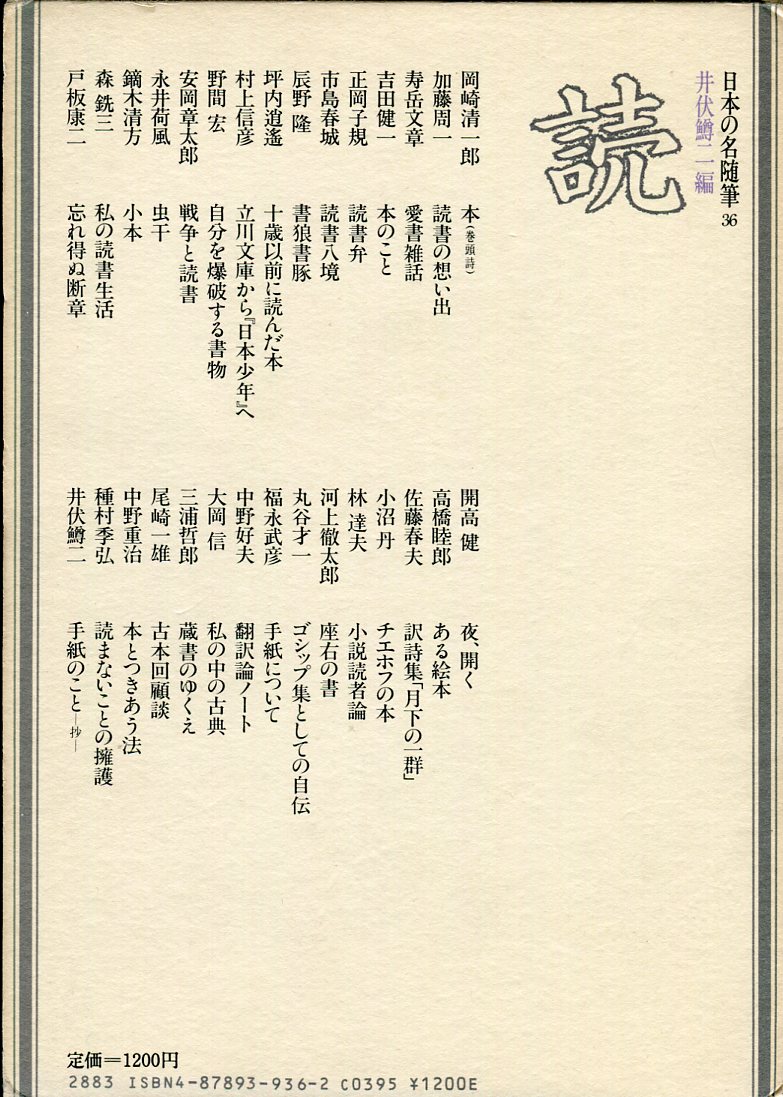 日本の名随筆 36
井伏鱒二編
読
岡崎清一郎 本(巻頭詩)
加藤周一 読書の想い出
寿岳文章 愛書雑話
吉田健一 本のこと
正岡子規 読書弁
市島春城 読書八境
辰野 隆 書狼書豚
坪内逍遙 十歳以前に読んだ本
村上信彦 立川文庫から『日本少年』へ
野間 宏 自分を爆破する書物
安岡章太郎 戦争と読書
永井荷風 虫干
鏑木清方 小本
森 銑三 私の読書生活
戸板康二 忘れ得ぬ断章
開高 健 夜、開く
高橋睦郎 ある絵本
佐藤春夫 訳詩集「月下の一群」
小沼 丹 チエホフの本
林 達夫 小説読者論
河上徹太郎 座右の書
丸谷才一 ゴシップ集としての自伝
福永武彦 手紙について
中野好夫 翻訳論ノート
大岡 信 私の中の古典
三浦哲郎 蔵書のゆくえ
尾崎一雄 古本回顧談
中野重治 本とつきあう法
種村季弘 読まないことの擁護
井伏鱒二 手紙のこと—抄—
定価=1200円
2883 ISBN4-87893-936-2 C0395 ¥1200E